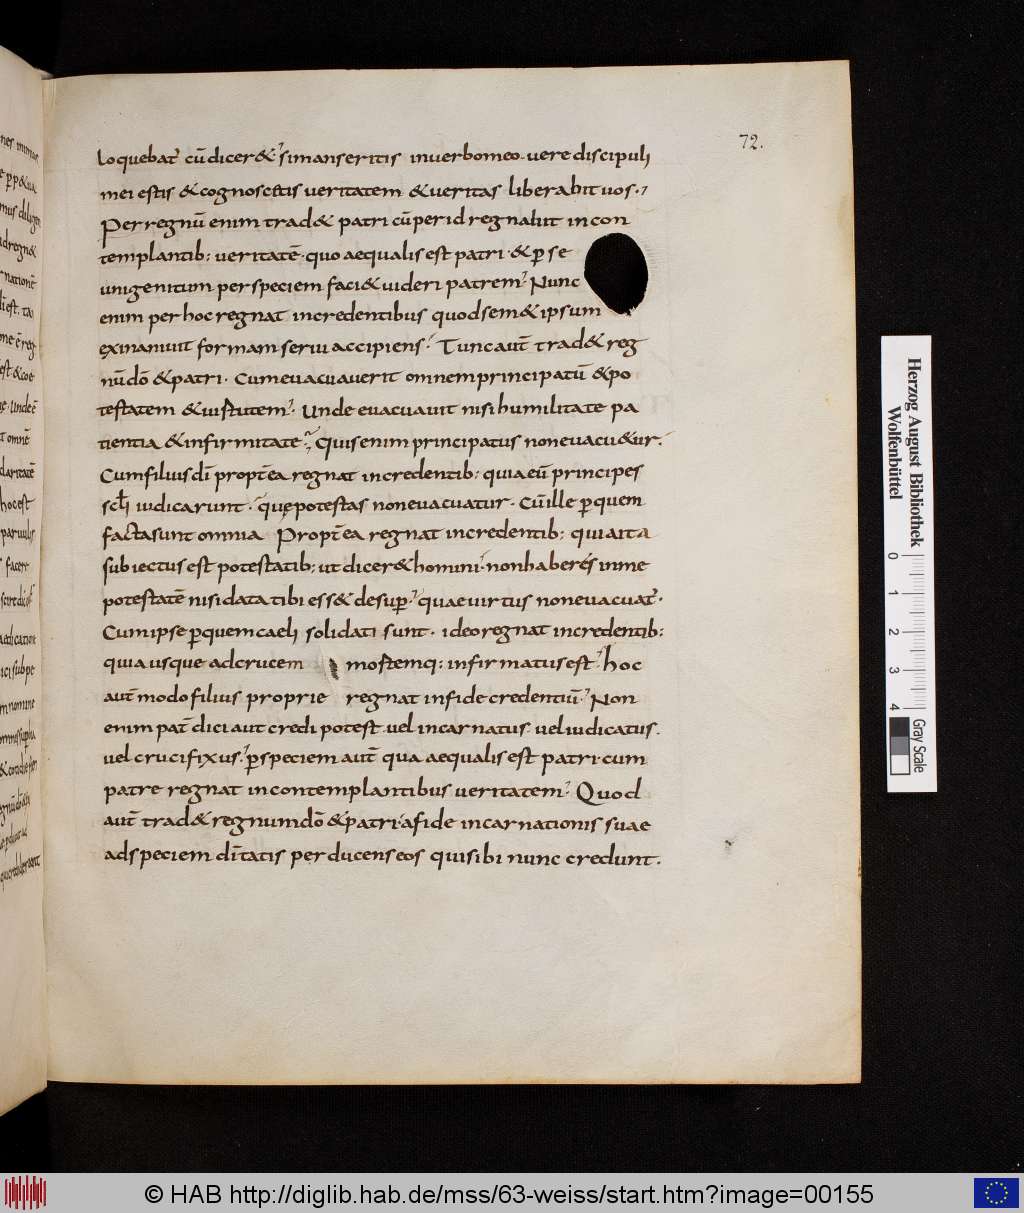 72.
loquebat᷑ cū dicer& si manseritis in verbo meo vere discipuli
mei estis & cognoscetis veritatem & veritas liberabit vos.
Per regnū enim trad& patri cū per id regnabit in con
templantib; veritatē quo aequalis est patri & ꝑ se
unigenitum per speciem faci& videri patrem Nunc
enim per hoc regnat in credentibus quod sem&ipsum
exinanivit formam servi accipiens. Tunc aūt trad& reg
nū dō & patri. Cum evacuaverit omnem principatū & po
testatem & virtutem. Unde evacuavit nisi humilitate pa
tientia & infirmitate. Quis enim principatus non evacu&ur.
Cum filius dī propterea regnat in credentib; quia eū principes
sc̄li iudicarunt. quę potestas non evacuatur. Cū ille ꝑ quem
facta sunt omnia Propterea regnat in credentib; quia ita
subiectus est potestatib; ut dicer& homini. non haberes in me
potestatē nisi data tibi ess& desuꝑ. quae virtus non evacuat᷑.
Cum ipse ꝑ quem caeli solidati sunt. ideo regnat in credentib;
quia usque ad crucem mortemq; infirmatus est. hoc
aūt modo filius proprie regnat in fide credentiū. Non
enim pat̄ dici aut credi potest vel incarnatus vel iudicatus.
vel crucifixus. ꝑ speciem aūt qua aequalis est patri cum
patre regnat in contemplantibus veritatem. Quod
aūt trad& regnum dō & patri a fide incarnationis suae
ad speciem dītatis perducens eos qui sibi nunc credunt.
Herzog August Bibliothek
Wolfenbüttel
0 1 2 3 4
Gray Scale
© HAB http://diglib.hab.de/mss/63-weiss/start.htm?image=00155